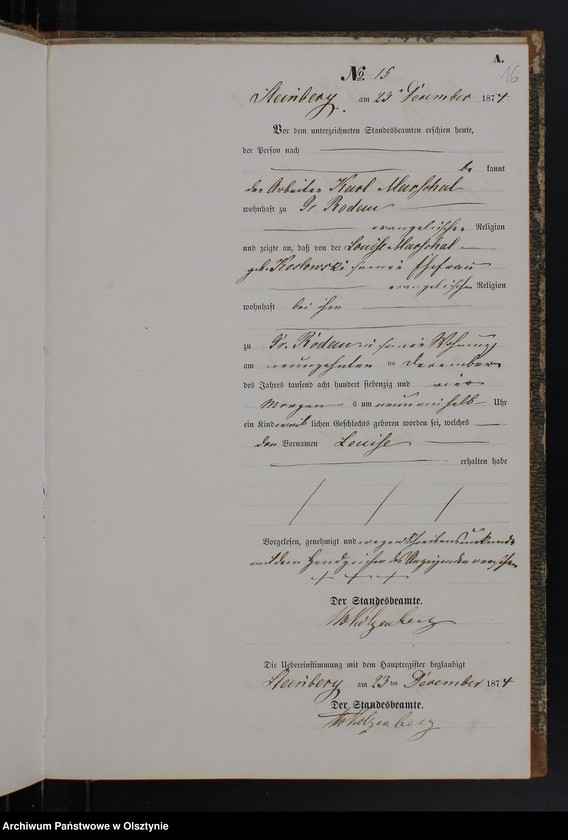 A.
16
No. 15
Steinberg, am 23 December 1874
Vor dem unterzeichneten Standesbeamten erschien heute,
der Person nach
be kannt
der Arbeiter Karl Marschal
wohnhaft zu Gr Rödau
evangelischer Religion
und zeigte an, daß von der Louise Marschal
geb. Koslowski seine Ehefrau
evangelischer Religion
wohnhaft bei ihm
zu Gr. Rödau in seine Wohnung
am neunzehnten ten December
des Jahres tausend acht hundert siebenzig und vier
Morgens um neun einhalb Uhr
ein Kind weib lichen Geschlechts geboren worden sei, welches
den Vornamen Louise
erhalten habe
Vorgelesen, genehmigt und wegen Schreibensunkunde
mit dem Handzeichen des Anzeigenden versehen
+ + +
Der Standesbeamte.
Die Uebereinstimmung mit dem Hauptregister beglaubigt
Steinberg am 23 ten December 1874
Der Standesbeamte.
Archiwum Państwowe w Olsztynie